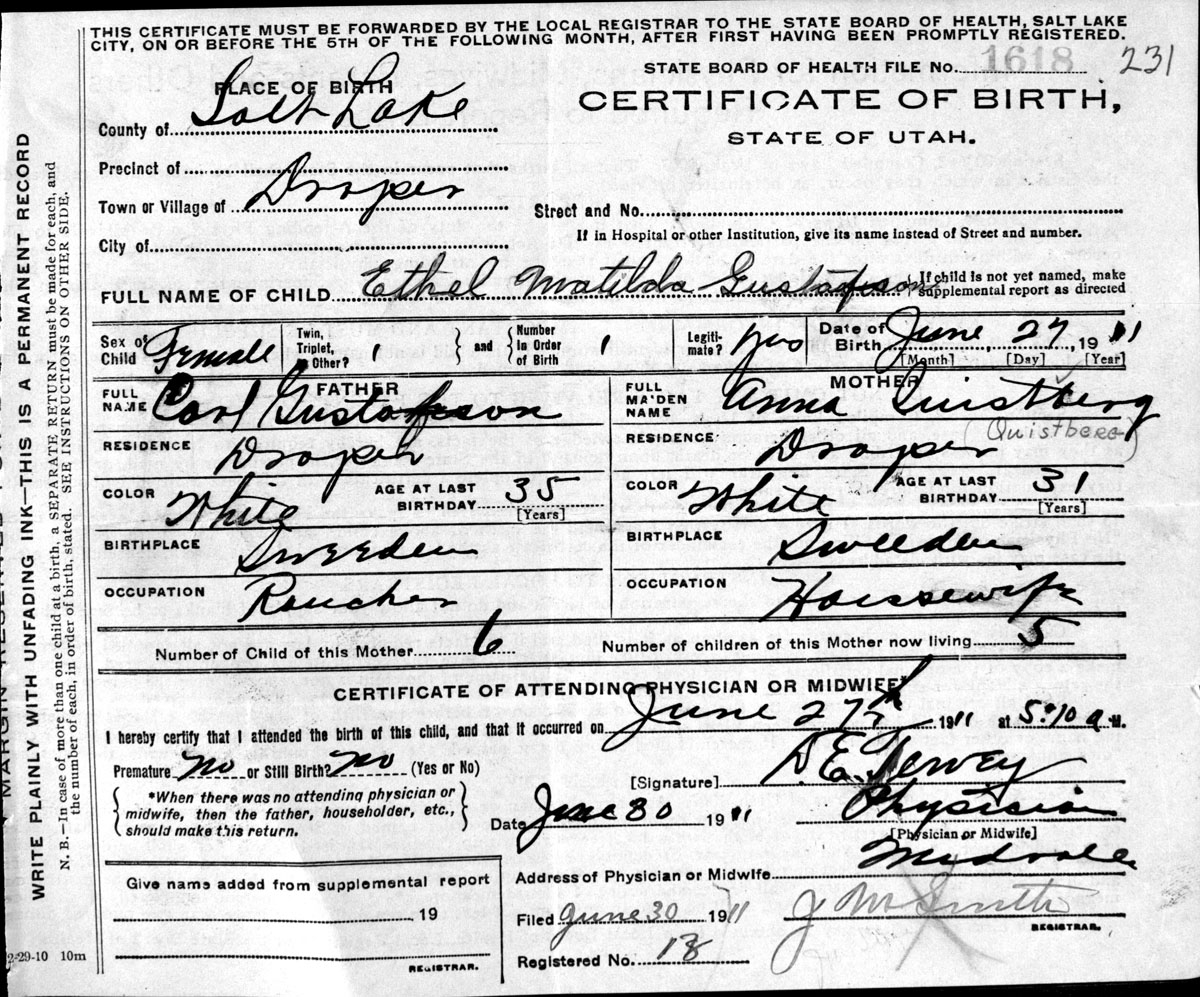 THIS CERTIFICATE MUST BE FORWARDED BY THE LOCAL REGISTRAR TO THE STATE BOARD OF HEALTH, SALT LAKE
CITY, ON OR BEFORE THE 5TH OF THE FOLLOWING MONTH, AFTER FIRST HAVING BEEN PROMPTLY REGISTERED.
STATE BOARD OF HEALTH FILE No. 1618 231
PLACE OF BIRTH
CERTIFICATE OF BIRTH,
STATE OF UTAH.
County of Salt Lake
Precinct of
Town or Village of Draper
Street and No.
If in Hospital or other Institution, give its name instead of Street and number.
City of
FULL NAME OF CHILD Ethel Matilda Gustafson
If child is not yet named, make
supplemental report as directed
Sex of Child Female
Twin, Triplet, or Other? 1
and
Number In Order of Birth 1
Legiti-mate? Yes
Date of Birth June 27, 1911
[Month] [Day] [Year]
FATHER
FULL NAME Carl Gustafson
RESIDENCE Draper
COLOR White
AGE AT LAST BIRTHDAY 35
[Years]
BIRTHPLACE Sweeden
OCCUPATION Rancher
MOTHER
FULL MAIDEN NAME Anna Quistberg
(Quistberg)
RESIDENCE Draper
COLOR White
AGE AT LAST BIRTHDAY 31
[Years]
BIRTHPLACE Sweeden
OCCUPATION Housewife
Number of Child of this Mother 6
Number of children of this Mother now living 5
CERTIFICATE OF ATTENDING PHYSICIAN OR MIDWIFE*
I hereby certify that I attended the birth of this child, and that it occurred on June 27th, 1911 at 5:10 a M.
Premature? No or Still Birth? No (Yes or No)
*When there was no attending physician or
midwife, then the father, householder, etc.,
should make this return.
[Signature] D E Dewey
Date June 30 1911
Physician
[Physician or Midwife]
Address of Physician or Midwife Midvale
Give name added from supplemental report
19
REGISTRAR.
Filed June 30 1911
J M Smith
REGISTRAR.
Registered No. 18
2-29-10 10m
WRITE PLAINLY WITH UNFADING INK—THIS IS A PERMANENT RECORD
N. B.—In case of more than one child at a birth, a SEPARATE RETURN must be made for each, and
the number of each, in order of birth, stated. SEE INSTRUCTIONS ON OTHER SIDE.